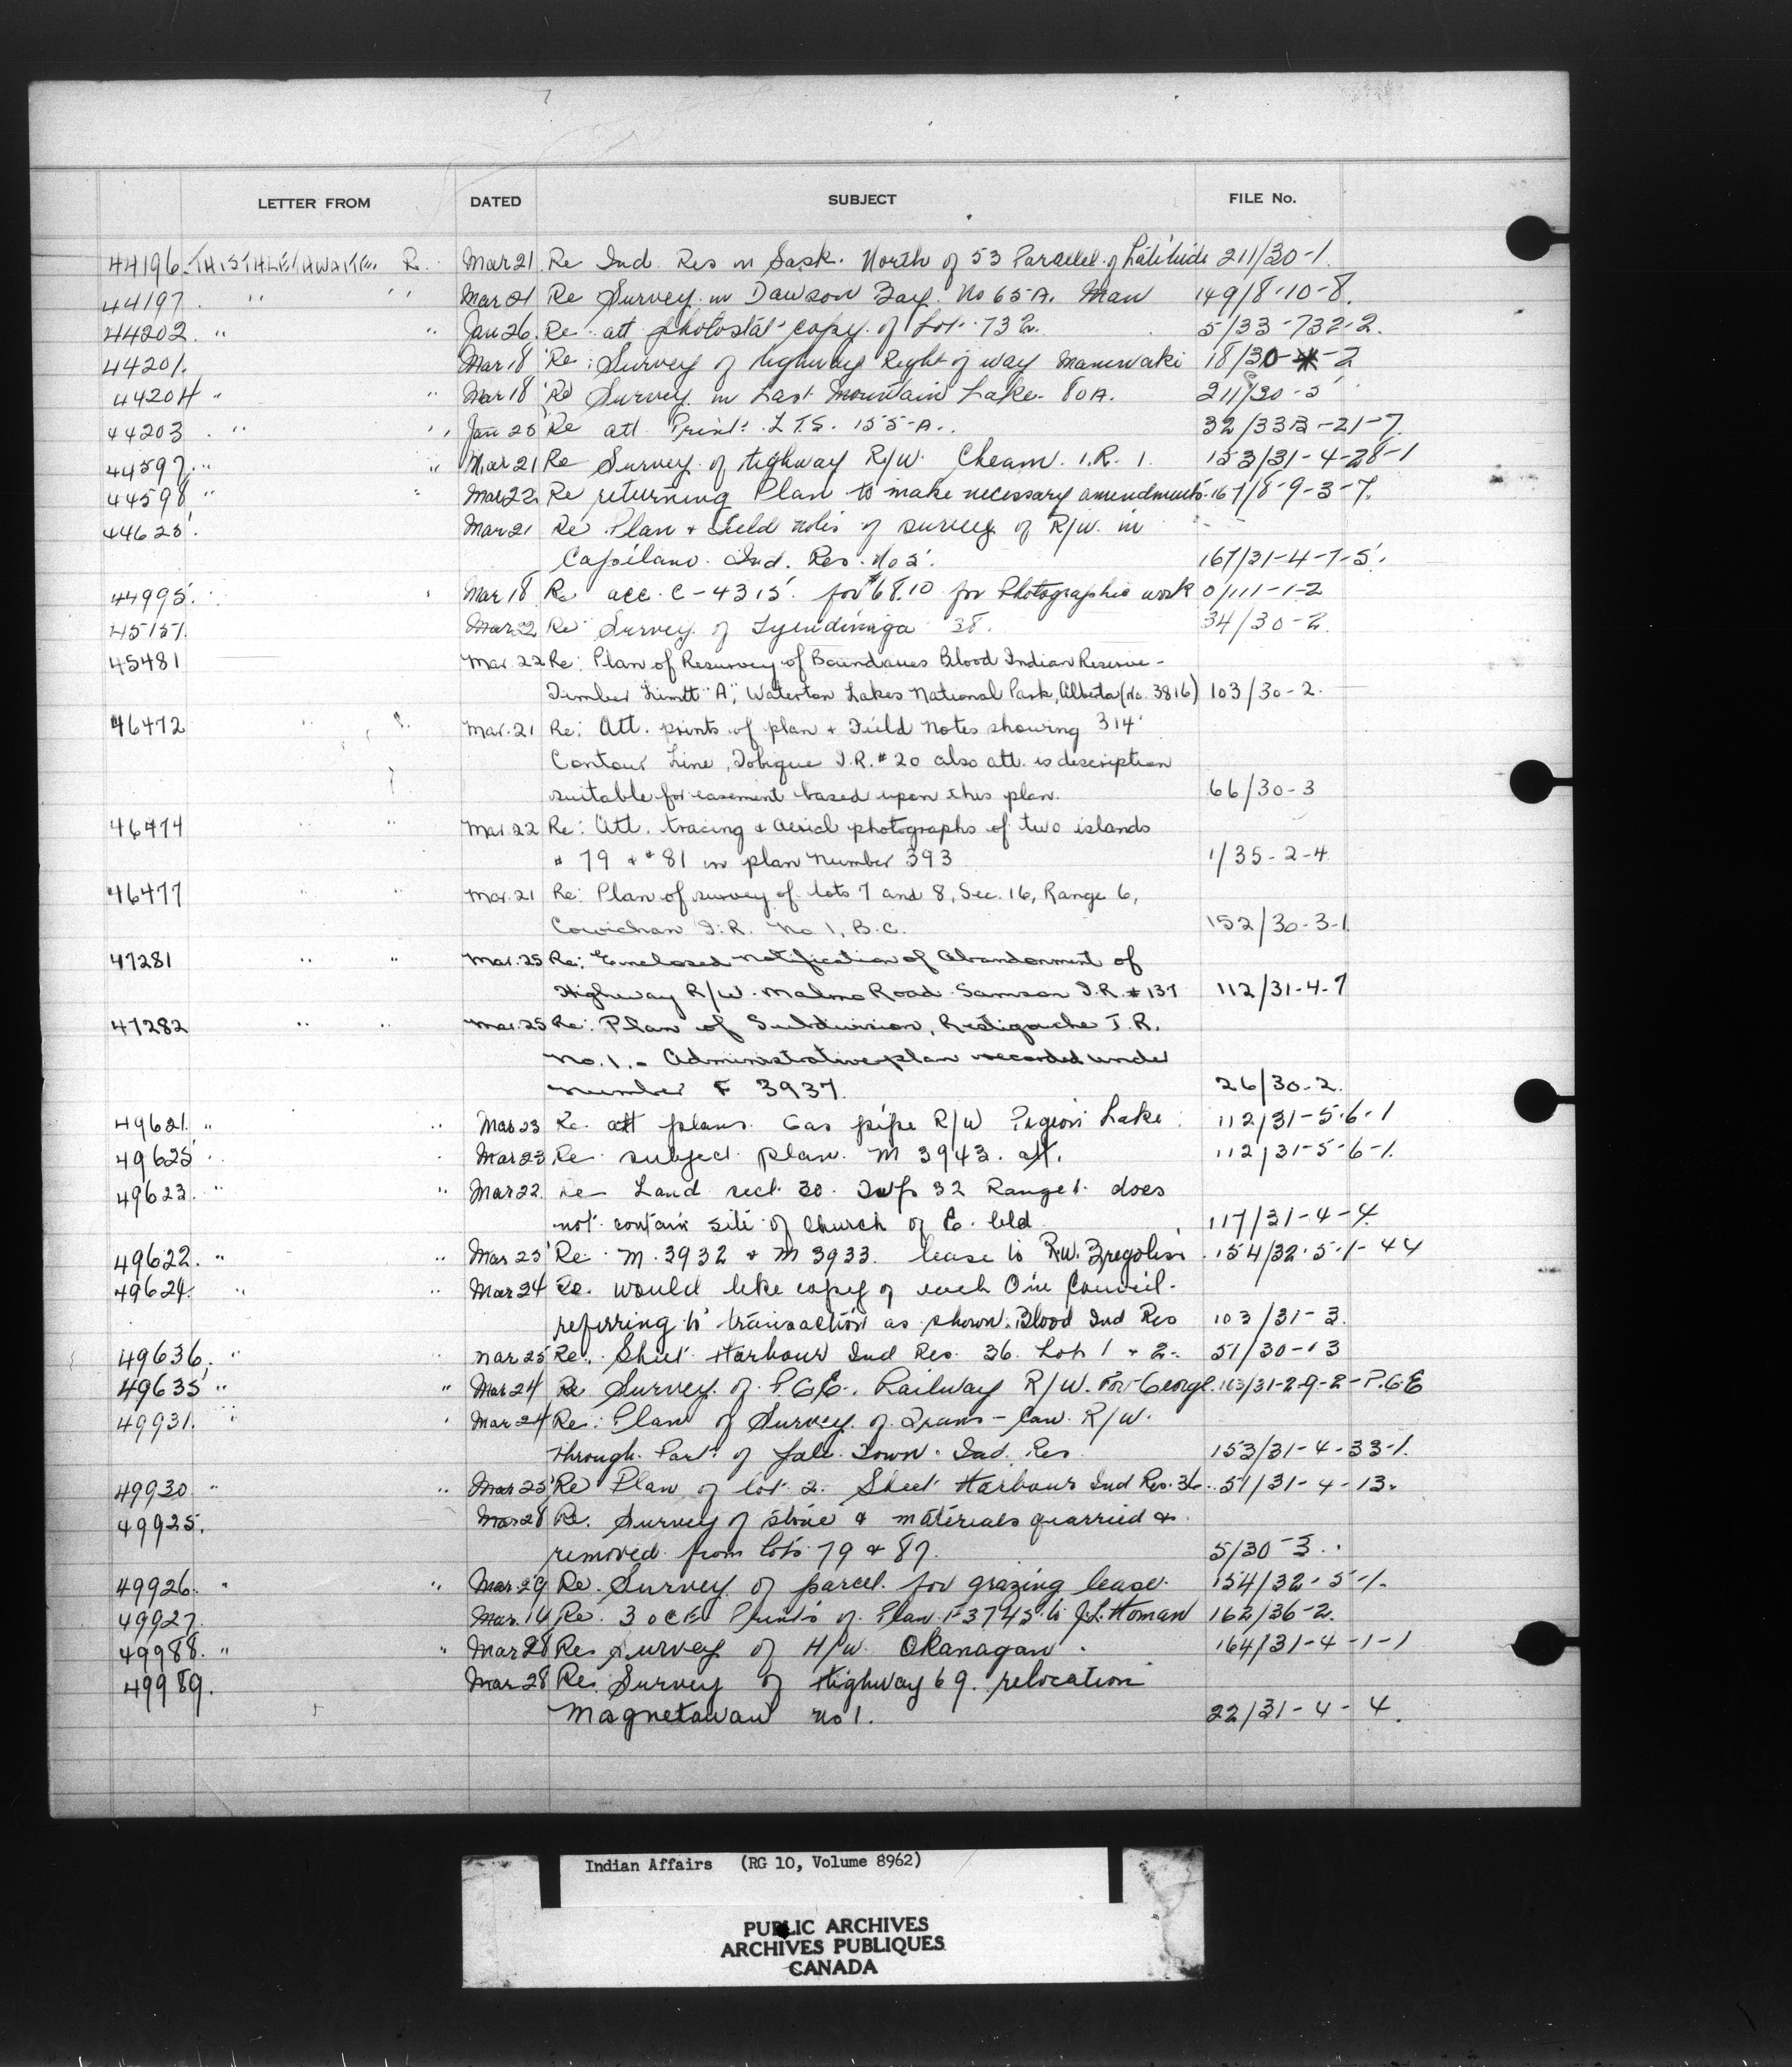 LETTER FROM DATED SUBJECT FILE No.
44196 THISTHLETHWAITE, R. Mar 21 Re Ind Res in Sask. North of 53 Parallel of Latitude 211/30-1
44197 " " Mar 21 Re Survey in Dawson Bay No 65A. Man 149/8-10-8.
44202 " " Jan 26 Re att photostat copy of Lot 732. 5/33-732-2.
44201. Mar 18 Re: Survey of highway Right of way Maniwaki 18/30- -2
44204 " " Mar 18 Re Survey in Last Mountain Lake 80A. 211/30-5
44203 " " Jan 25 Re att Print: L.T.S. 155-A. 32/33B-21-7.
44597 " " Mar 21 Re Survey of highway R/W Cheam I.R. 1. 153/31-4-28-1
44598 " " Mar 22 Re returning Plan to make necessary amendments 167/8-9-3-7.
44625. Mar 21 Re Plan & Field notes of survey of R/W in
Capilano Ind. Res. No 5. 167/31-4-7-5.
44995. Mar 18 Re acc. C-4315 for $68.10 for Photographic work 0/111-1-2
45151. Mar 22 Re Survey of Tyendinaga 38. 34/30-2.
45481 Mar. 22 Re: Plan of Resurvey of Boundaries Blood Indian Reserve -
Timber Limit "A", Waterton Lakes National Park, Alberta (No. 3816) 103/30-2.
46472 " " Mar. 21 Re: Att. prints of plan & Field Notes showing 314'
Contour Line, Tobique I.R. # 20 also att. is description
suitable for easement based upon this plan. 66/30-3
46474 " " Mar. 22 Re: Att. tracing & Aerial photographs of two islands
# 79 & # 81 in plan number 393 1/35-2-4
46477 " " Mar. 21 Re: Plan of survey of lots 7 and 8, Sec. 16, Range 6,
Cowichan I.R. No 1, B.C. 152/30-3-1
47281 " " Mar. 25 Re: Enclosed notification of Abandonment of
Highway R/W. Malmo Road Samson I.R. # 137 112/31-4-7
47282 " " Mar. 25 Re: Plan of Subdivision, Restigouche I.R.
No. 1. - Administrative plan recorded under
number F 3937. 26/30-2.
49621. " " Mar 23 Re att plans Gas pipe R/W Pigeon Lake 112/31-5-6-1
49625 " " Mar 23 Re subject plan M 3943. att. 112/31-5-6-1.
49623. " " Mar 22 Re Land sect 30. Twp 32 Range 1. does
not contain site of Church of E. 117/31-4-4.
49622. " " Mar 23 Re M. 3932 & M 3933. lease to R.W. 154/32-5-1-44
49624. " " Mar 24 Re. would like copy of each Council.
referring to transaction as shown. Blood Ind Res 103/31-3.
49636. " " Mar 25 Re. Sheet Harbour Ind Res. 36 Lots 1 & 2. 51/30-13
49635 " " Mar 24 Re Survey of P.G.E. Railway R/W. Fort George 163/31-2-9-2-P.G.E
49931. " " Mar 24 Re: Plan of Survey of Trans-Can R/W.
through Part of Town Ind. Res 153/31-4-33-1.
49930 " " Mar 25 Re Plan of lot 2. Sheet Harbour Ind Res. 36 51/31-4-13.
49925. Mar 28 Re. Survey of stone & materials quarried &
removed from lots 79 & 87. 5/30-3.
49926. " " Mar. 29 Re. Survey of parcel for grazing lease 154/32-5-1.
49927. Mar. 14 Re. 3 Prints of Plan F3745 to J.L. Homan 162/36-2.
49988. " " Mar 28 Re Survey of H/W. Okanagan. 164/31-4-1-1
49989. Mar 28 Re. Survey of Highway 69. relocation
Magnetawan no 1. 22/31-4-4.
Indian Affairs (RG 10, Volume 8962)
PUBLIC ARCHIVES
ARCHIVES PUBLIQUES
CANADA